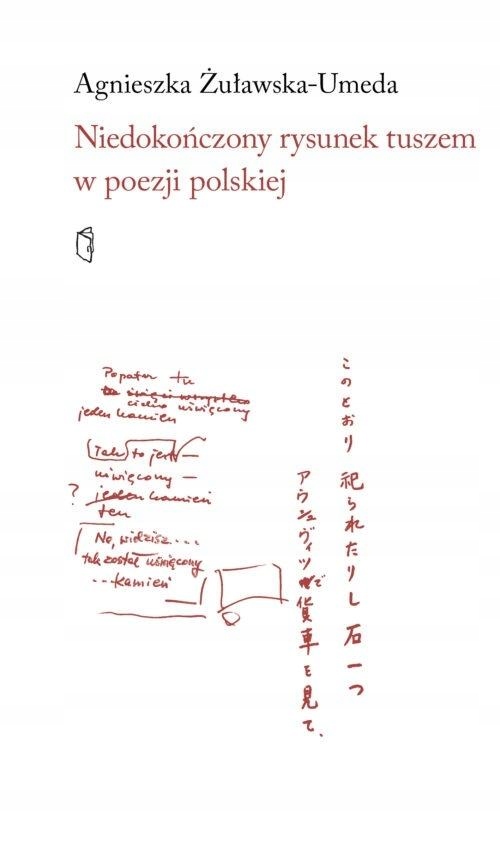 Agnieszka Żuławska-Umeda
Niedokończony rysunek tuszem
w poezji polskiej
Popatrz tu
uświęcony
jeden kamień
(Tak) to jest —
uświęcony —
? jeden kamień
ten
No, widzisz...
tak został uświęcony
...kamień
このとおり 祀られたりし 石一つ
アウシュヴィッツで貨車を見て、